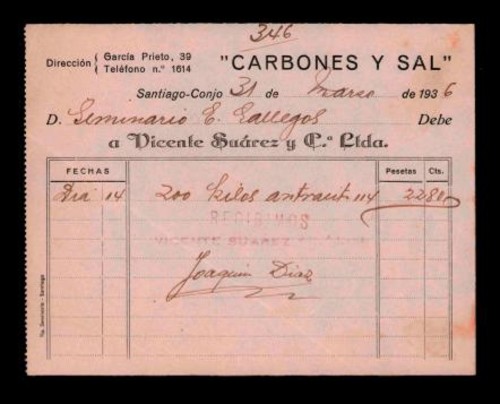 346
Dirección { García Prieto, 39
Teléfono n.º 1614
"CARBONES Y SAL"
Santiago-Conjo 31 de Marzo de 1936
D. Seminario E. Gallegos Debe
a Vicente Suárez y C.ª Ltda.
FECHAS Pesetas Cts.
Día 14 200 kilos antracit 114 22 80
RECIBIMOS
VICENTE SUAREZ
Joaquin Diaz
Tip. Seminario - Santiago